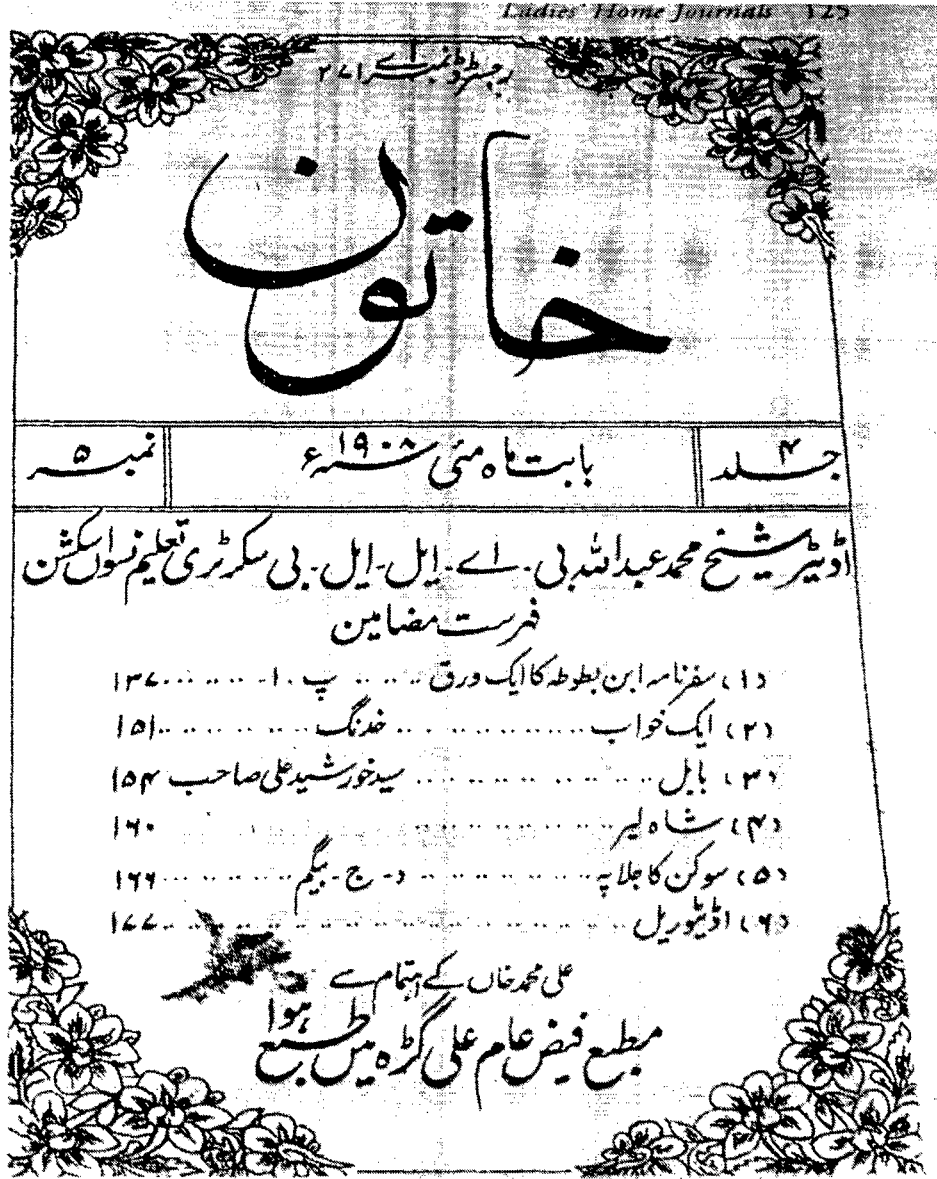 Ladies' Home Journals 125
رجسٹرڈ نمبر اے ۲۷۱
خاتون
جلد ۴
بابت ماہ مئی سنہ ۱۹۰۸ء
نمبر ۵
اڈیٹر شیخ محمد عبداللہ بی۔ اے۔ ایل۔ ایل۔ بی سکرٹری تعلیم نسواں سکشن
فہرست مضامین
(۱) سفرنامہ ابن بطوطہ کا ایک ورق ...... پ۔ ا۔ ...... ۱۳۷
(۲) ایک خواب ...... خدنگ ...... ۱۵۱
(۳) بابل ...... سید خورشید علی صاحب ۱۵۴
(۴) شاہ لیر ...... ۱۶۰
(۵) سوکن کا جلاپہ ...... د۔ ج۔ بیگم ...... ۱۶۶
(۶) اڈیٹوریل ...... ۱۷۷
علی محمد خاں کے اہتمام سے
مطبع فیض عام علی گڑہ میں طبع ہوا